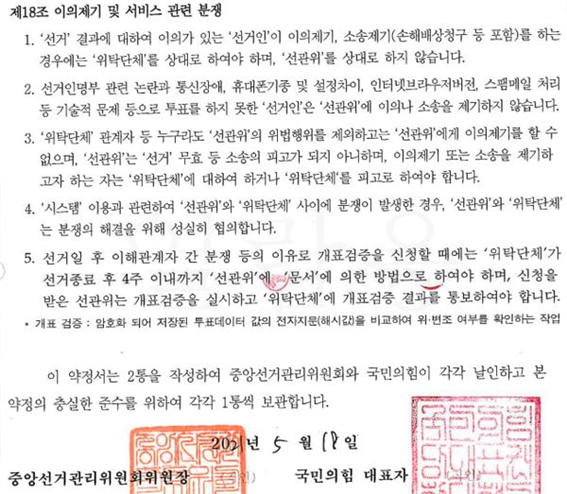 제18조 이의제기 및 서비스 관련 분쟁
1. '선거' 결과에 대하여 이의가 있는 '선거인'이 이의제기, 소송제기(손해배상청구 등 포함)를 하는
경우에는 '위탁단체'를 상대로 하여야 하며, '선관위'를 상대로 하지 않습니다.
2. 선거인명부 관련 논란과 통신장애, 휴대폰기종 및 설정차이, 인터넷브라우저버전, 스팸메일 처리
등 기술적 문제 등으로 투표를 하지 못한 '선거인'은 '선관위'에 이의나 소송을 제기하지 않습니다.
3. '위탁단체' 관계자 등 누구라도 '선관위'의 위법행위를 제외하고는 '선관위'에게 이의제기를 할 수
없으며, '선관위'는 '선거' 무효 등 소송의 피고가 되지 아니하며, 이의제기 또는 소송을 제기하
고자 하는 자는 '위탁단체'에 대하여 하거나 '위탁단체'를 피고로 하여야 합니다.
4. '시스템' 이용과 관련하여 '선관위'와 '위탁단체' 사이에 분쟁이 발생한 경우, '선관위'와 '위탁단체'
는 분쟁의 해결을 위해 성실히 협의합니다.
5. 선거일 후 이해관계자 간 분쟁 등의 이유로 개표검증을 신청할 때에는 '위탁단체'가
선거종료 후 4주 이내까지 '선관위'에 '문서'에 의한 방법으로 하여야 하며, 신청을
받은 선관위는 개표검증을 실시하고 '위탁단체'에 개표검증 결과를 통보하여야 합니다.
* 개표 검증 : 암호화 되어 저장된 투표데이터 값의 전자지문(해시값)을 비교하여 위·변조 여부를 확인하는 작업
이 약정서는 2통을 작성하여 중앙선거관리위원회와 국민의힘이 각각 날인하고 본
약정의 충실한 준수를 위하여 각각 1통씩 보관합니다.
2021년 5월 18일
중앙선거관리위원회위원장 국민의힘 대표자